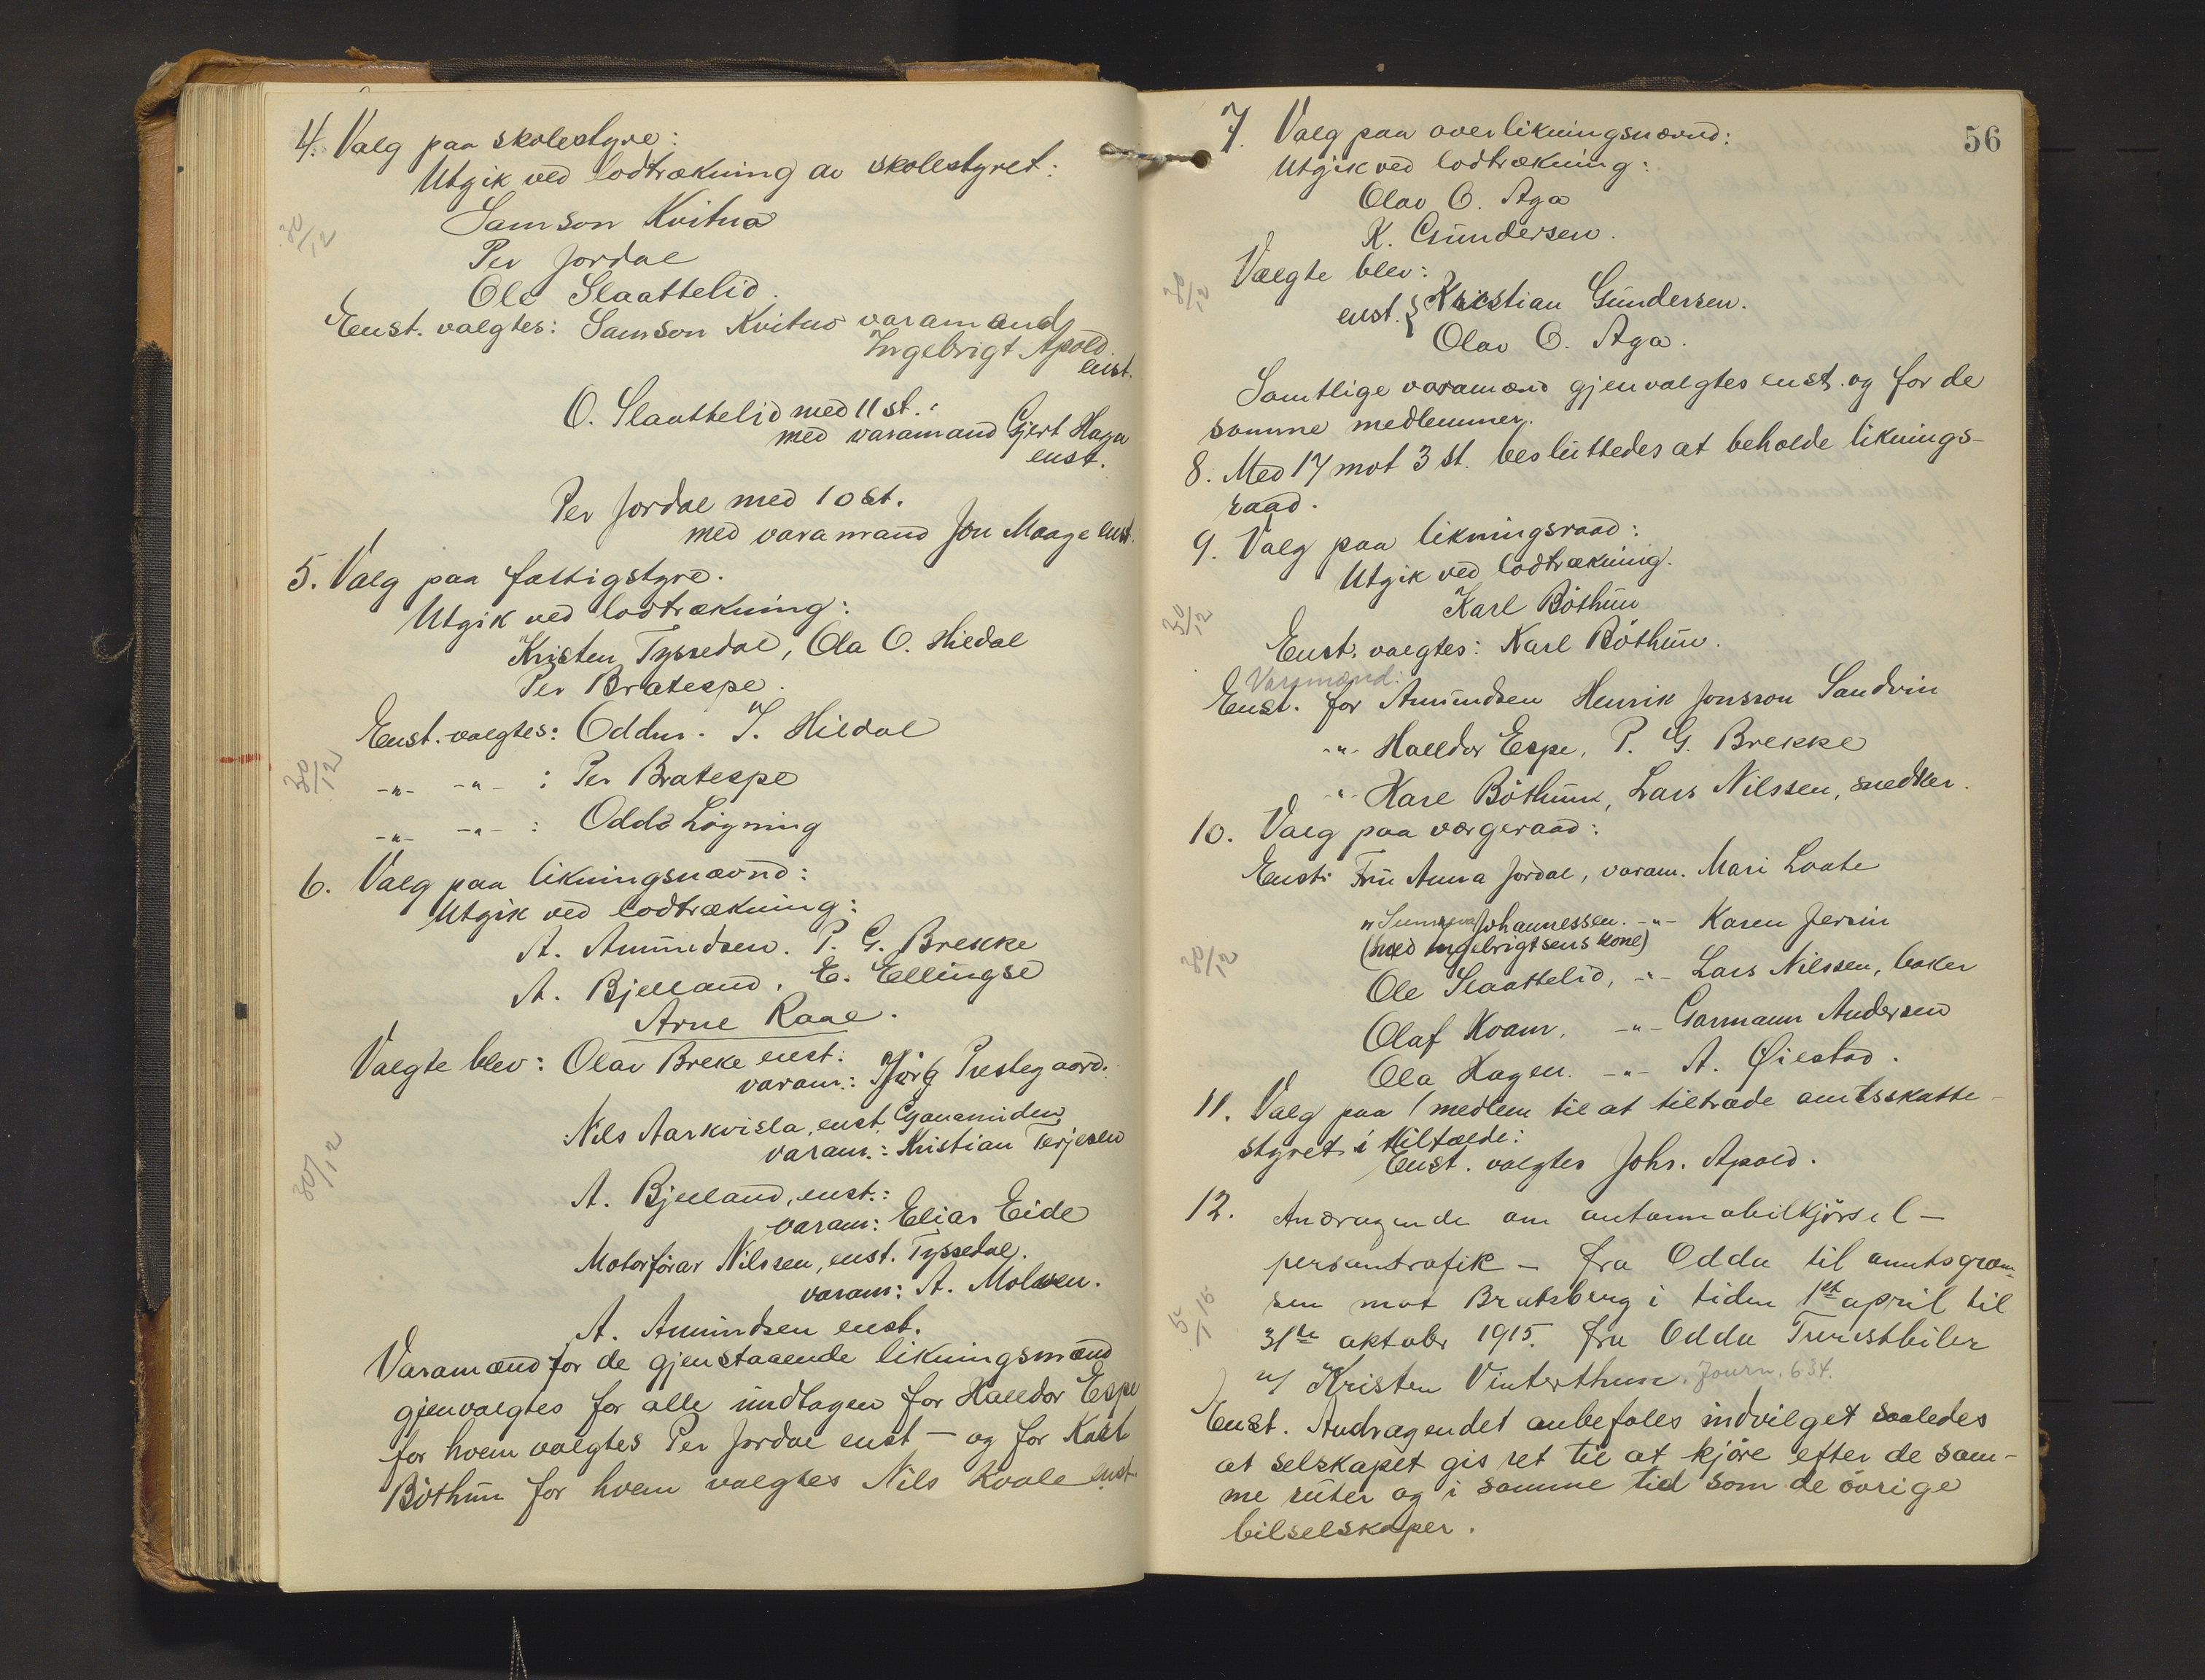 4. Valg paa skolestyre:
Utgik ved lodtrækning av skolestyret:
30/12
Samson Kvitna
Per Jordal
Ole Slaattelid.
Enst. valgtes: Samson Kvitno varamand
Ingebrigt Apold.
enst.
O. Slaattelid med 11 st.:
med varamand Gjert Haga
enst.
Per Jordal med 10 st.
med varamand Jon Maage enst.
5. Valg paa fattigstyre.
Utgik ved lodtrækning:
Kristen Tyssedal, Ola O. Hildal
Per Bratespe.
Enst. valgtes: Oddm. T. Hildal
30/12
-"- -"- : Per Bratespe
-"- -"- : Odd Løyning
6. Valg paa likningsnævnd:
Utgik ved lodtrækning:
A. Amundsen. P. G. Brekke
A. Bjelland, E. Ellingse
Arne Raae.
Valgte blev: Olav Breke enst.:
varam.: Prestegaard.
Nils Aarkvisla, enst. Cyanamiden
varam.: Kristian Terjesen
30/12
A. Bjelland, enst.:
varam: Elias Eide
Motorförar Nilssen, enst. Tyssedal.
varam: A. Molven.
A. Amundsen enst.
Varamænd for de gjenstaaende likningsmænd
gjenvalgtes for alle undtagen for Halldor Espe
for hvem valgtes Per Jordal enst – og for Karl
Böthun for hvem valgtes Nils Kvale enst.
56
7. Valg paa overlikningsnævnd:
Utgik ved lodtrækning:
Olav O. Aga
K. Gundersen.
Valgte blev:
30/12
enst. { Kristian Gundersen.
Olav O. Aga.
Samtlige varamænd gjenvalgtes enst. og for de
samme medlemmer.
8. Med 17 mot 3 st. besluttedes at beholde liknings-
raad.
9. Valg paa likningsraad:
Utgik ved lodtrækning.
30/12
Karl Böthun
Enst. valgtes: Karl Böthun.
Varamænd:
Enst. for Amundsen Henrik Jonsson Sandvin
-"- Halldor Espe, P. G. Brekke
-"- Karl Böthun, Lars Nilssen, snedker.
10. Valg paa vergeraad:
Enst: Fru Anna Jordal, varam. Mari Laate
" Johannessen. -"- Karen Jersin
(med Ingebrigtsens kone)
30/12
Ole Slaattelid, -"- Lars Nilssen, baker
Olaf Kvam, -"- Garmann Andersen
Ola Hagen. -"- A. Øiestad.
11. Valg paa 1 medlem til at tiltræde amtsskatte-
styret i tilfælde:
Enst. valgtes Johs. Apold.
12. Andragende om automobilkjörsel –
persontrafik – fra Odda til amtsgræn-
sen mot Bratsberg i tiden 1st april til
31te oktober 1915. fra Odda Turistbiler
v/ Kristen Vinterthun. Journ. 634.
Enst. Andragendet anbefales indvilget saaledes
at selskapet gis ret til at kjöre efter de sam-
me ruter og i samme tid som de övrige
bilselskaper.